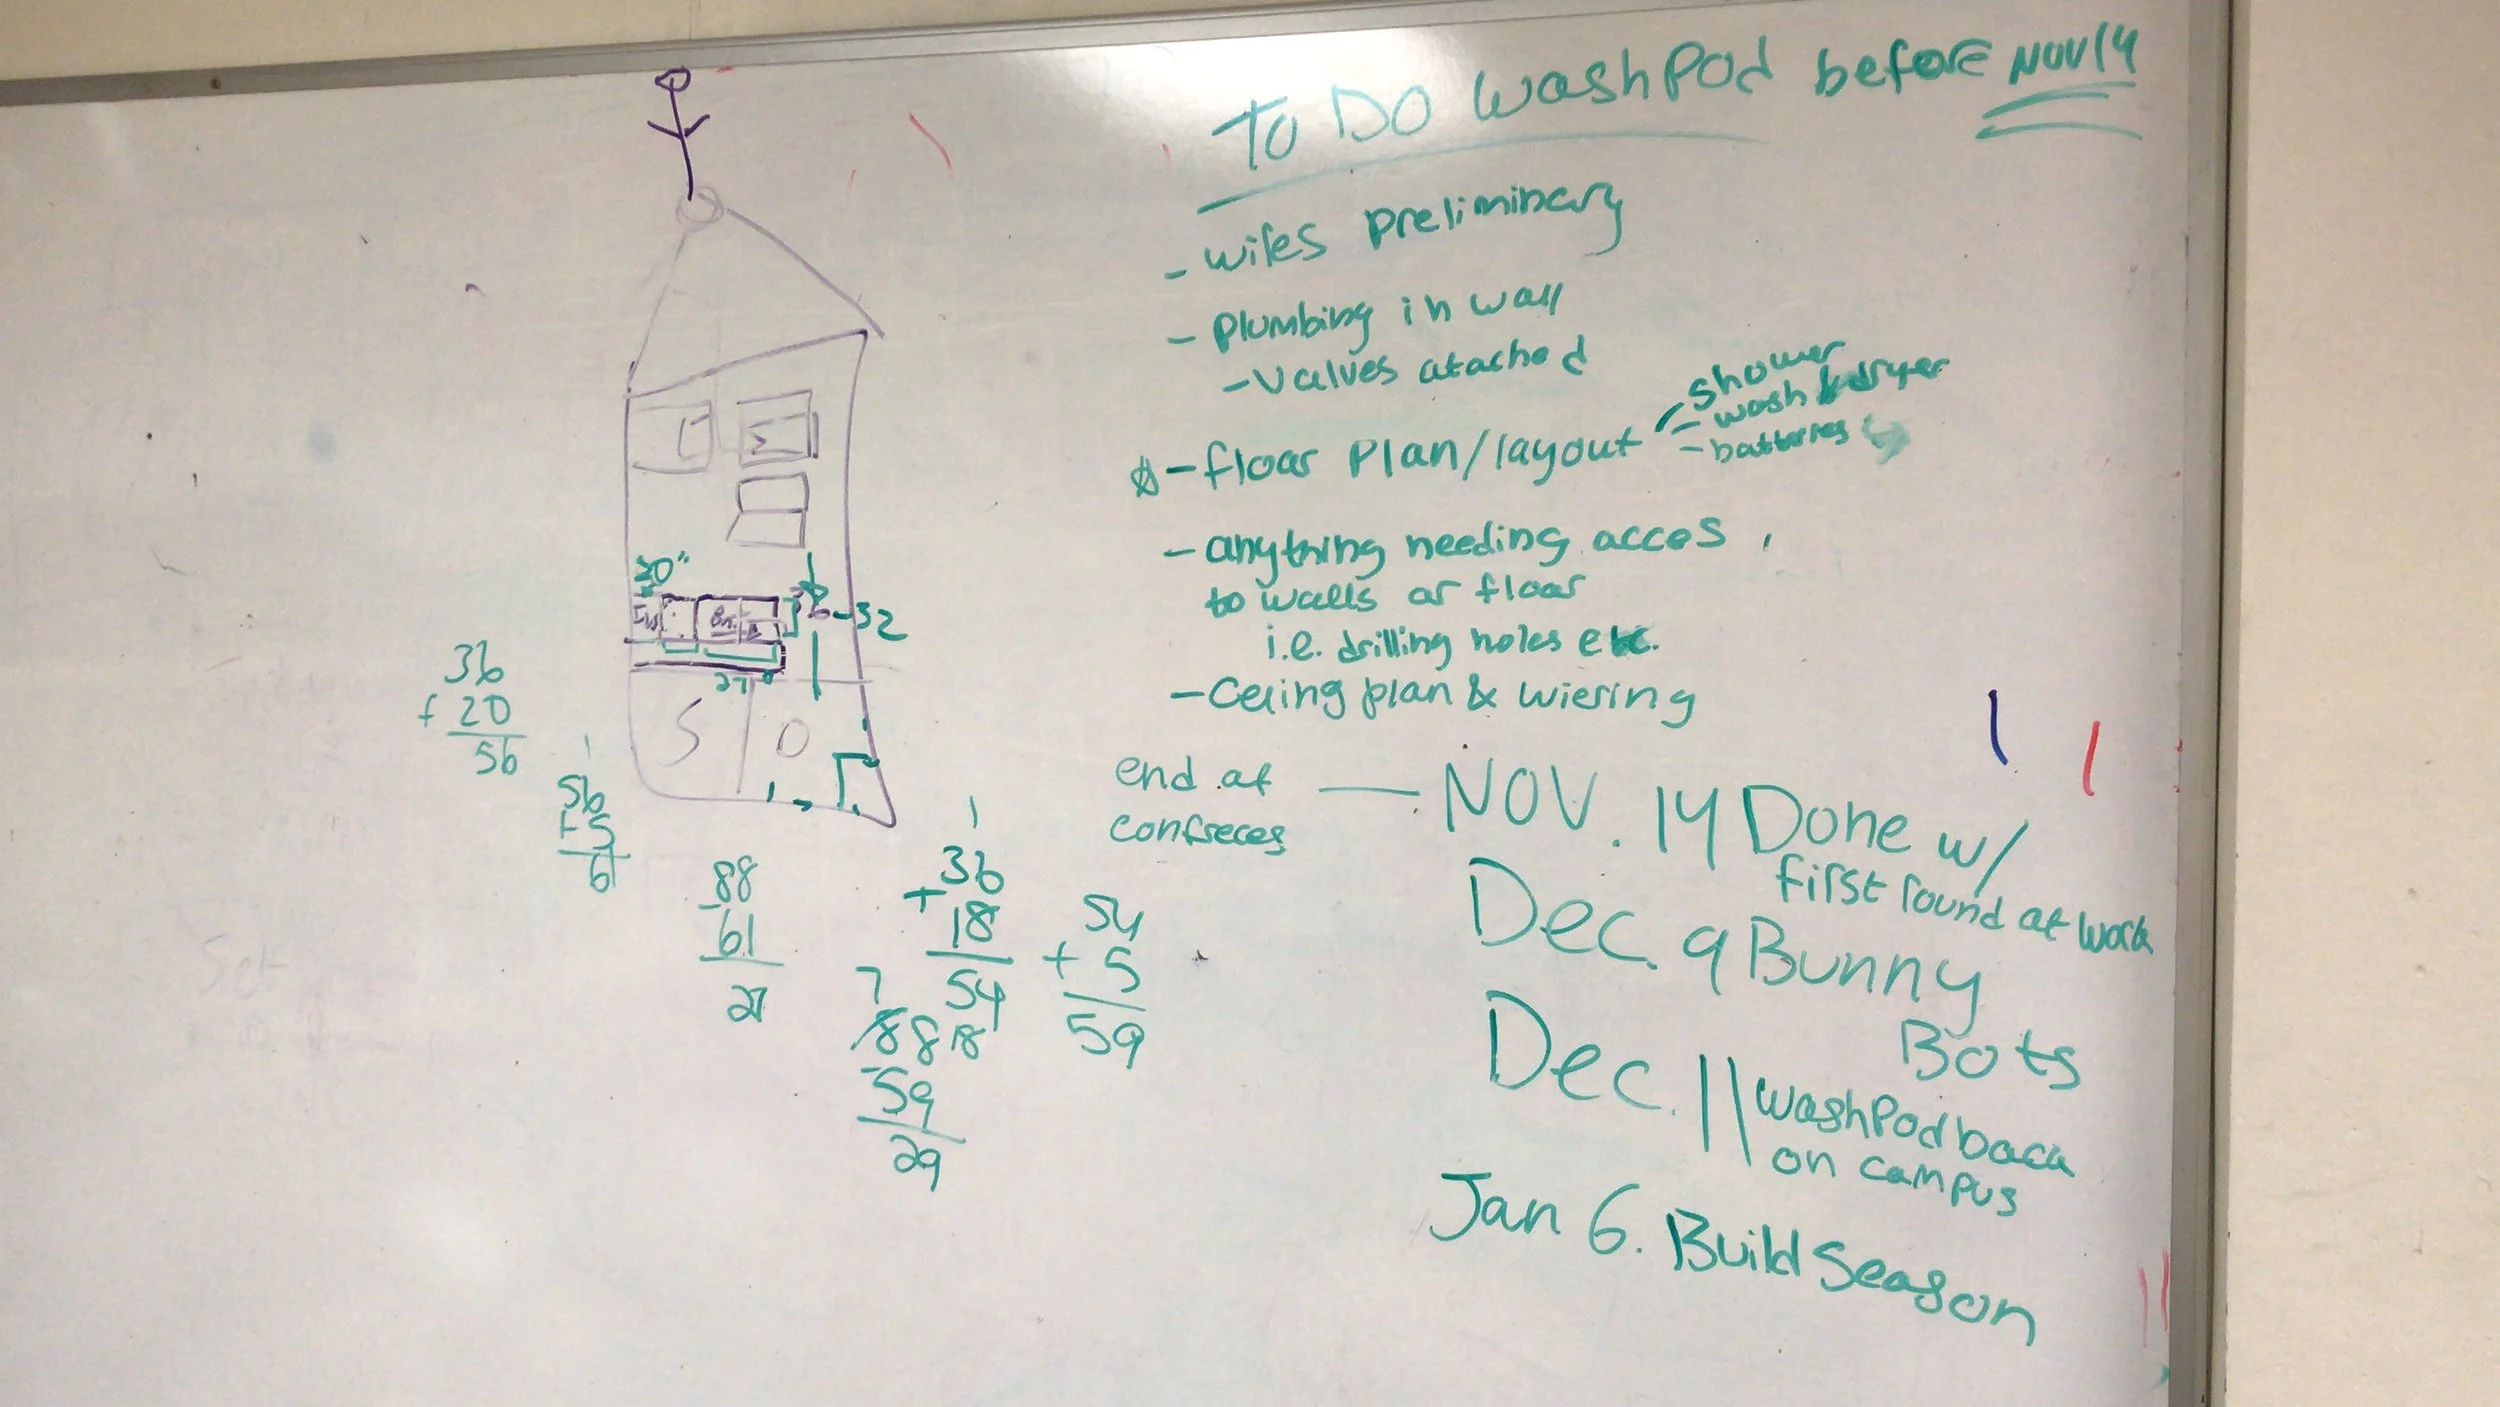 To DO WashPod before NOV14
- wires preliminary
- Plumbing in wall
- Valves atached
- floor Plan/layout
- shower
- wash & dryer
- batteries
- anything needing acces
to walls or floor
i.e. drilling holes etc.
- Celing plan & wiering
end at
confreces
— NOV. 14 Done w/
first round at work
Dec. 9 Bunny
Bots
Dec. 11 WashPod back
on campus
Jan 6. Build Season
20"
32
27"
S
D
36
+ 20
56
1
56
+ 5
61
88
- 61
27
1
36
+ 18
54
54
+ 5
59
7 18
88
- 59
29